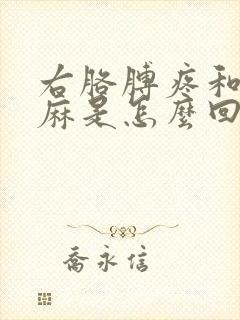 右胳膊疼和
麻是怎麼回
喬永信